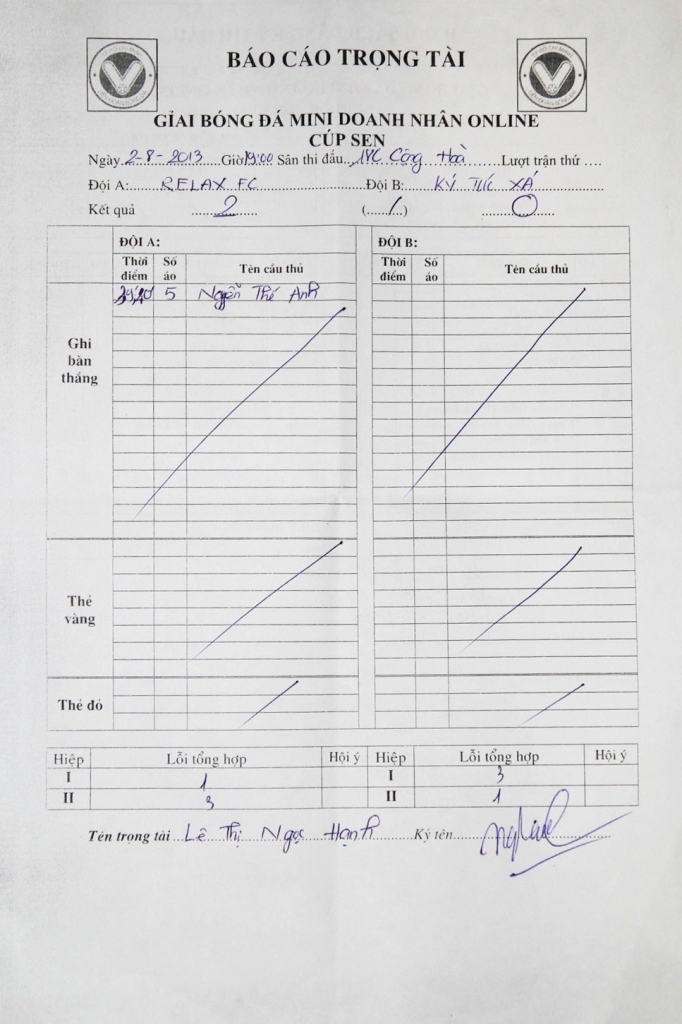 BÁO CÁO TRỌNG TÀI
GIẢI BÓNG ĐÁ MINI DOANH NHÂN ONLINE
CÚP SEN
Ngày 2-8-2013 Giờ 19:00 Sân thi đấu Cộng Hoà Lượt trận thứ ....
Đội A: RELAX FC Đội B: KÝ TÚC XÁ
Kết quả 2 (...../.....) 0
ĐỘI A: ĐỘI B:
Thời điểm Số áo Tên cầu thủ Thời điểm Số áo Tên cầu thủ
5 Nguyễn Thế Anh
Ghi bàn thắng
Thẻ vàng
Thẻ đỏ
Hiệp Lỗi tổng hợp Hội ý Hiệp Lỗi tổng hợp Hội ý
I 1 I 3
II 3 II 1
Tên trọng tài Lê Thị Ngọc Hạnh Ký tên